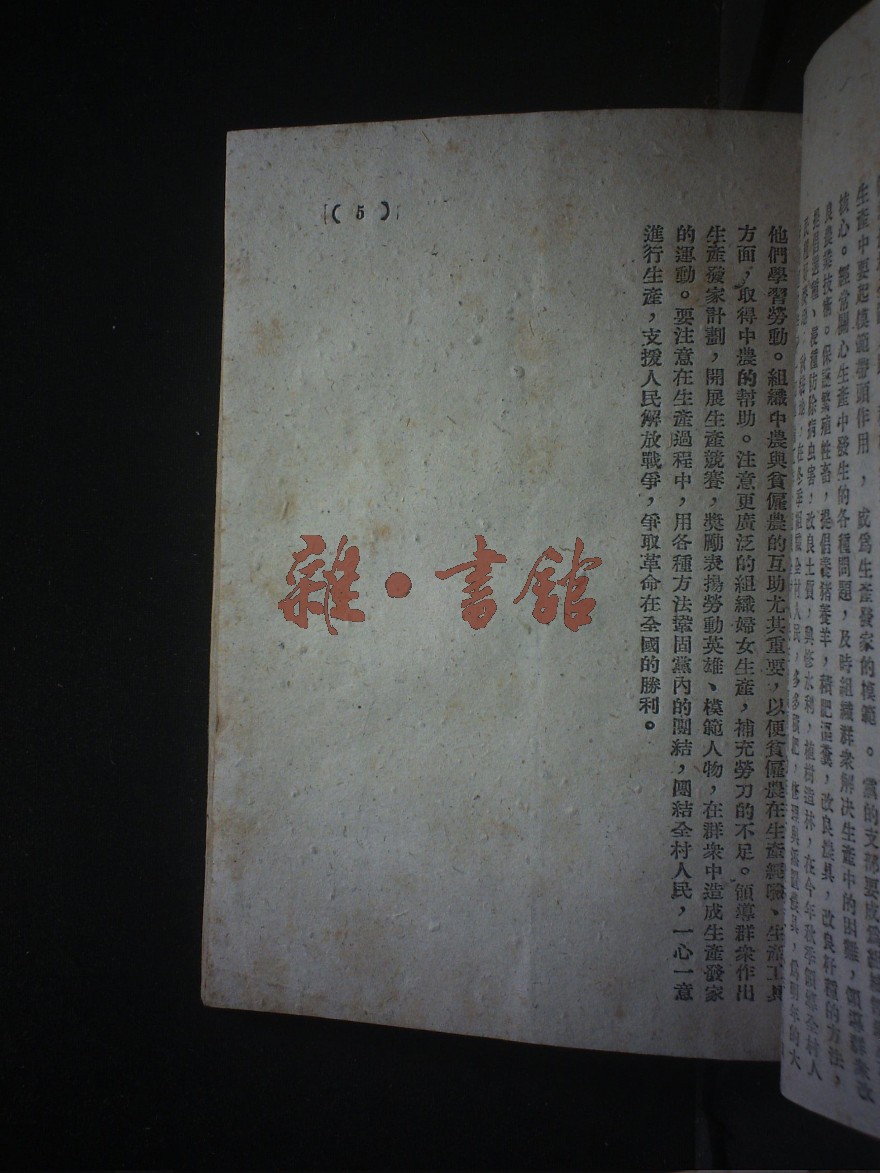 生產中要起模範帶頭作用，成爲生產發家的模範。黨的支部要成爲組織
核心。經常關心生產中發生的各種問題，及時組織群衆解決生產中的困難，領導群衆改
良農業技術。保証繁殖牲畜，提倡養猪養羊，積肥溫糞，改良農具，改良籽種的方法，
防除病虫害，改良土質，興修水利，植樹造林，在今年秋季領導全村人
在冬季組織全村人民，多多積肥，修理與添置農具，爲明年的大
他們學習勞動。組織中農與貧僱農的互助尤其重要，以便貧僱農在生產經驗、生產工具
方面，取得中農的幫助。注意更廣泛的組織婦女生產，補充勞力的不足。領導群衆作出
生產發家計劃，開展生產競賽，獎勵表揚勞動英雄、模範人物，在群衆中造成生產發家
的運動。要注意在生產過程中，用各種方法鞏固黨內的團結，團結全村人民，一心一意
進行生產，支援人民解放戰爭，爭取革命在全國的勝利。
( 5 )
雜·書館